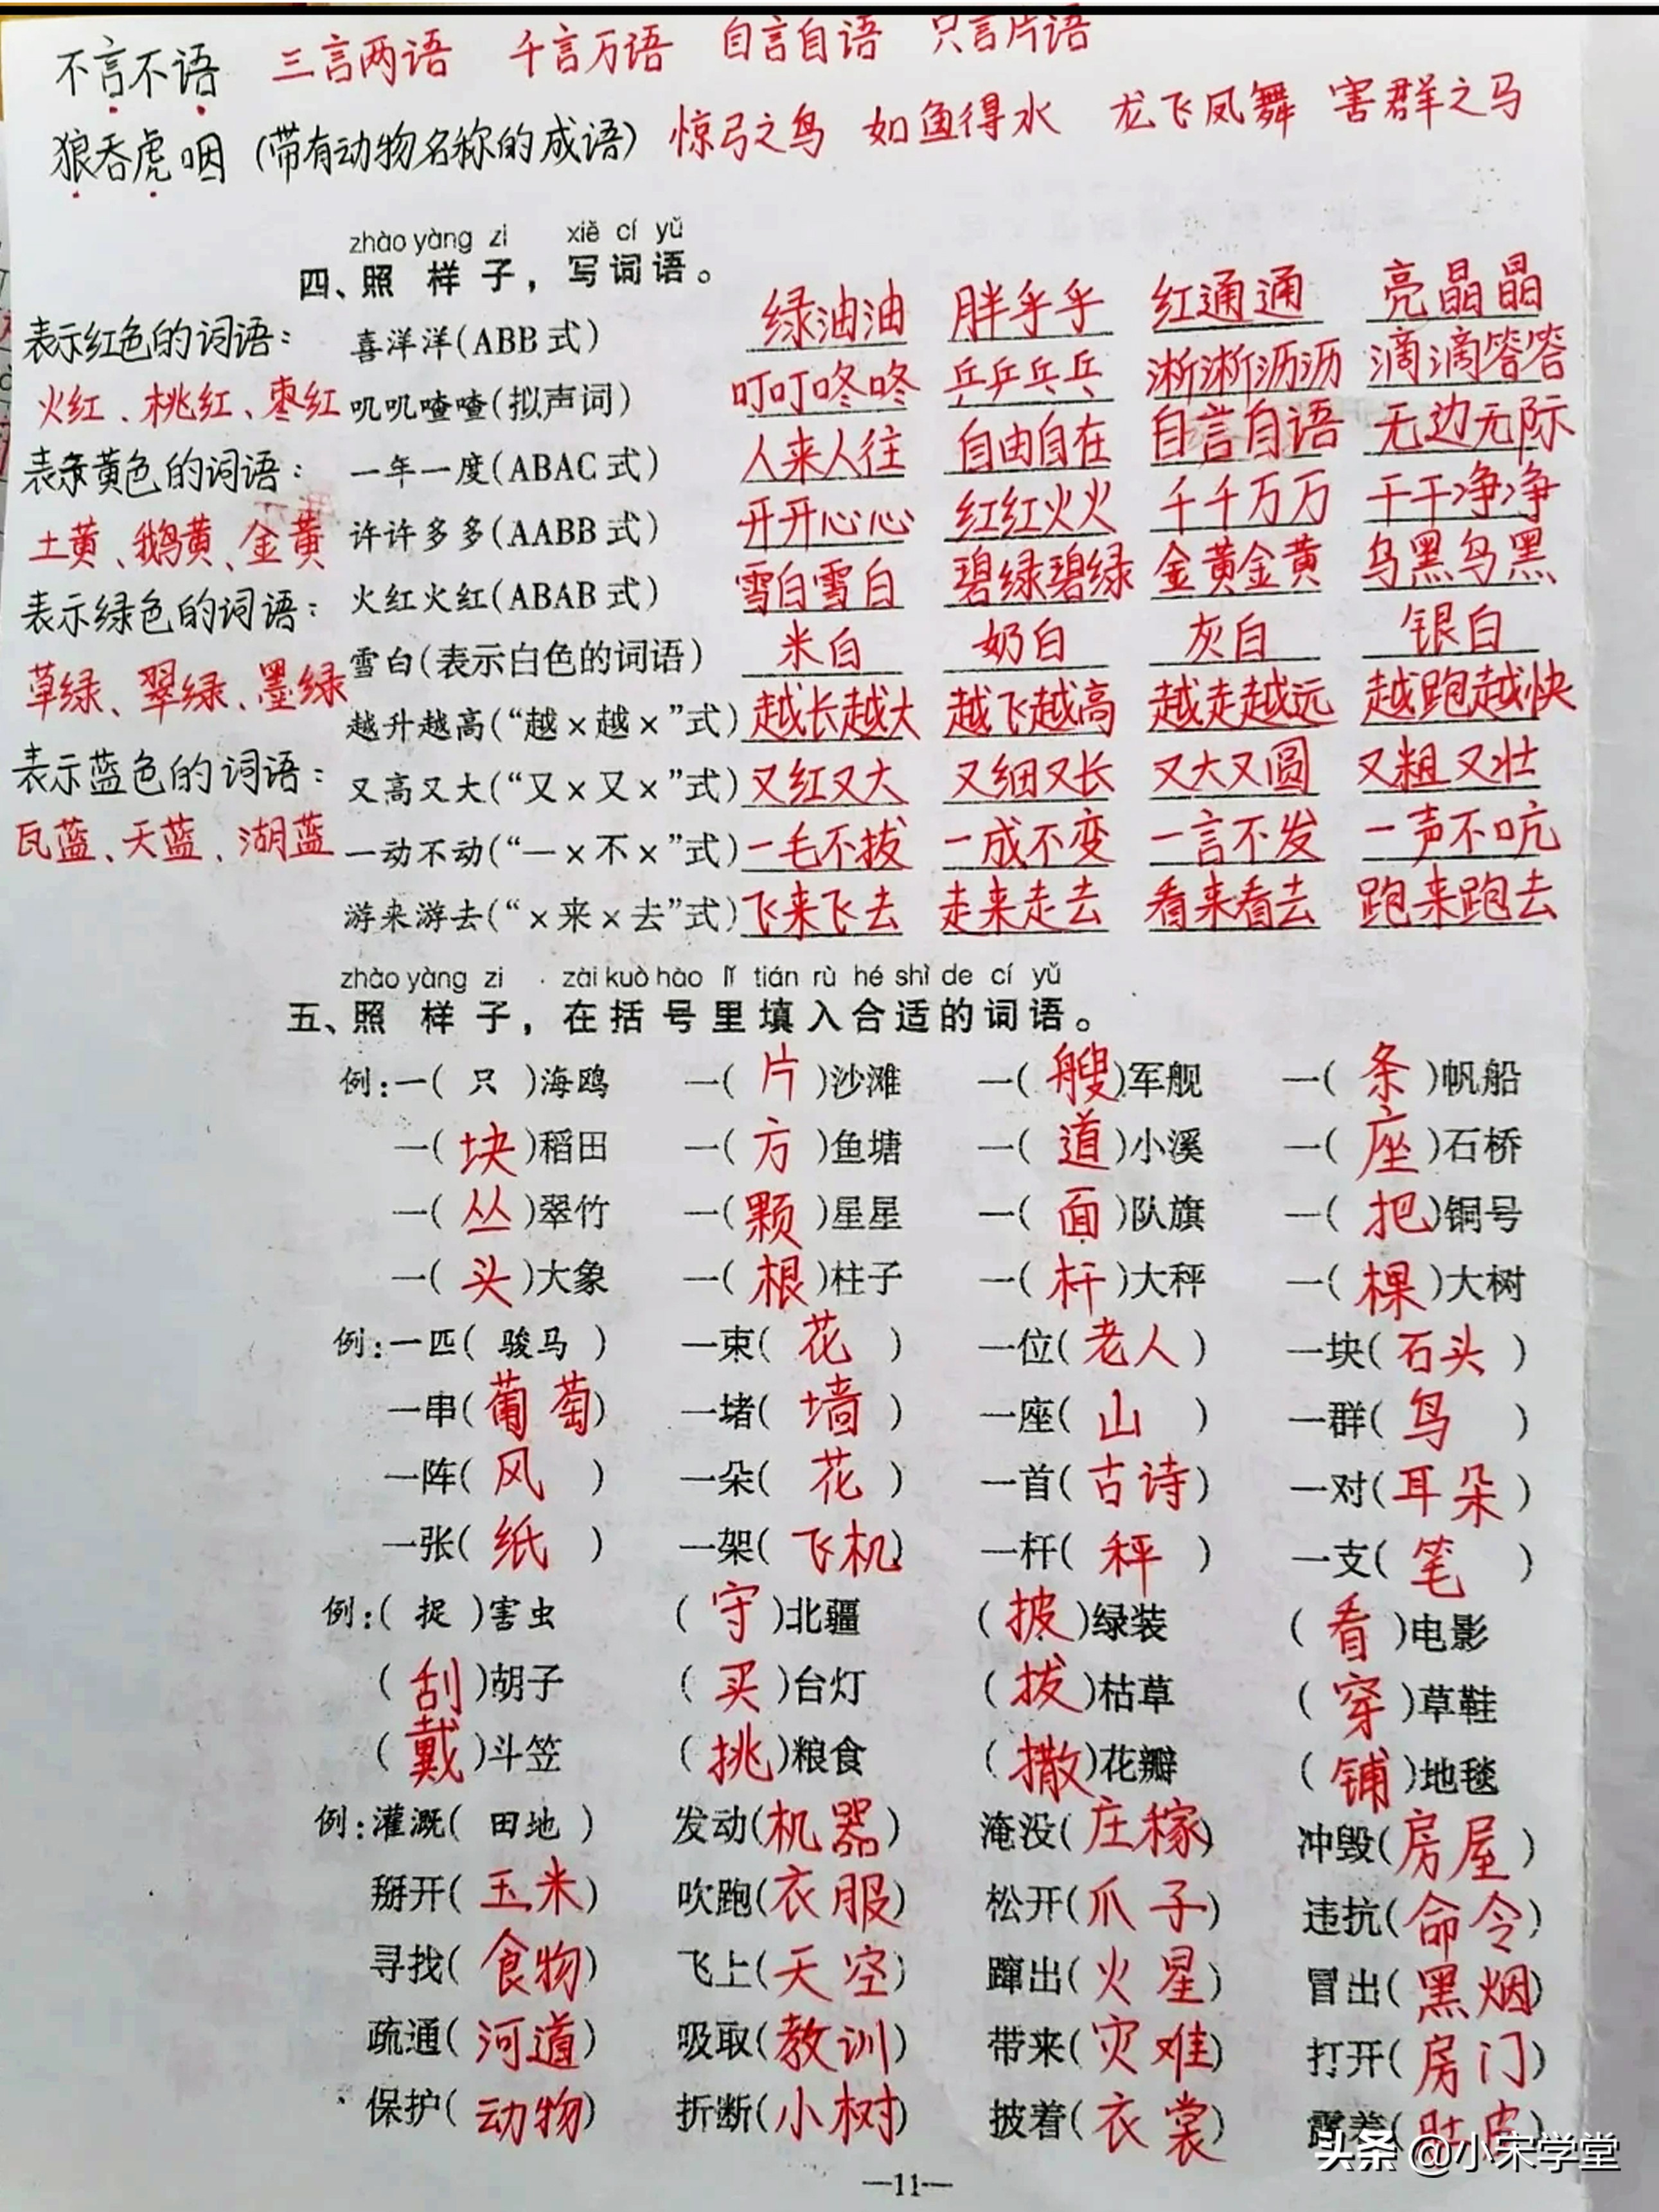 不言不语 三言两语 千言万语 自言自语 只言片语
狼吞虎咽(带有动物名称的成语) 惊弓之鸟 如鱼得水 龙飞凤舞 害群之马
zhào yàng zi xiě cí yǔ
四、照样子，写词语。
表示红色的词语：
火红、桃红、枣红
表示黄色的词语：
土黄、鹅黄、金黄
表示绿色的词语：
草绿、翠绿、墨绿
表示蓝色的词语：
瓦蓝、天蓝、湖蓝
喜洋洋(ABB式) 绿油油 胖乎乎 红通通 亮晶晶
叽叽喳喳(拟声词) 叮叮咚咚 乒乒乓乓 淅淅沥沥 滴滴答答
一年一度(ABAC式) 人来人往 自由自在 自言自语 无边无际
许许多多(AABB式) 开开心心 红红火火 千千万万 干干净净
火红火红(ABAB式) 雪白雪白 碧绿碧绿 金黄金黄 乌黑乌黑
雪白(表示白色的词语) 米白 奶白 灰白 银白
越升越高(“越×越×”式) 越长越大 越飞越高 越走越远 越跑越快
又高又大(“又×又×”式) 又红又大 又细又长 又大又圆 又粗又壮
一动不动(“一×不×”式) 一毛不拔 一成不变 一言不发 一声不吭
游来游去(“×来×去”式) 飞来飞去 走来走去 看来看去 跑来跑去
zhào yàng zi zài kuò hào lǐ tián rù hé shì de cí yǔ
五、照样子，在括号里填入合适的词语。
例:一(只)海鸥 一(片)沙滩 一(艘)军舰 一(条)帆船
一(块)稻田 一(方)鱼塘 一(道)小溪 一(座)石桥
一(丛)翠竹 一(颗)星星 一(面)队旗 一(把)铜号
一(头)大象 一(根)柱子 一(杆)大秤 一(棵)大树
例:一匹(骏马) 一束(花) 一位(老人) 一块(石头)
一串(葡萄) 一堵(墙) 一座(山) 一群(鸟)
一阵(风) 一朵(花) 一首(古诗) 一对(耳朵)
一张(纸) 一架(飞机) 一杆(秤) 一支(笔)
例:(捉)害虫 (守)北疆 (披)绿装 (看)电影
(刮)胡子 (买)台灯 (拔)枯草 (穿)草鞋
(戴)斗笠 (挑)粮食 (撒)花瓣 (铺)地毯
例:灌溉(田地) 发动(机器) 淹没(庄稼) 冲毁(房屋)
掰开(玉米) 吹跑(衣服) 松开(爪子) 违抗(命令)
寻找(食物) 飞上(天空) 蹿出(火星) 冒出(黑烟)
疏通(河道) 吸取(教训) 带来(灾难) 打开(房门)
保护(动物) 折断(小树) 披着(衣裳) 露着(肚皮)
—11—
头条 @小宋学堂